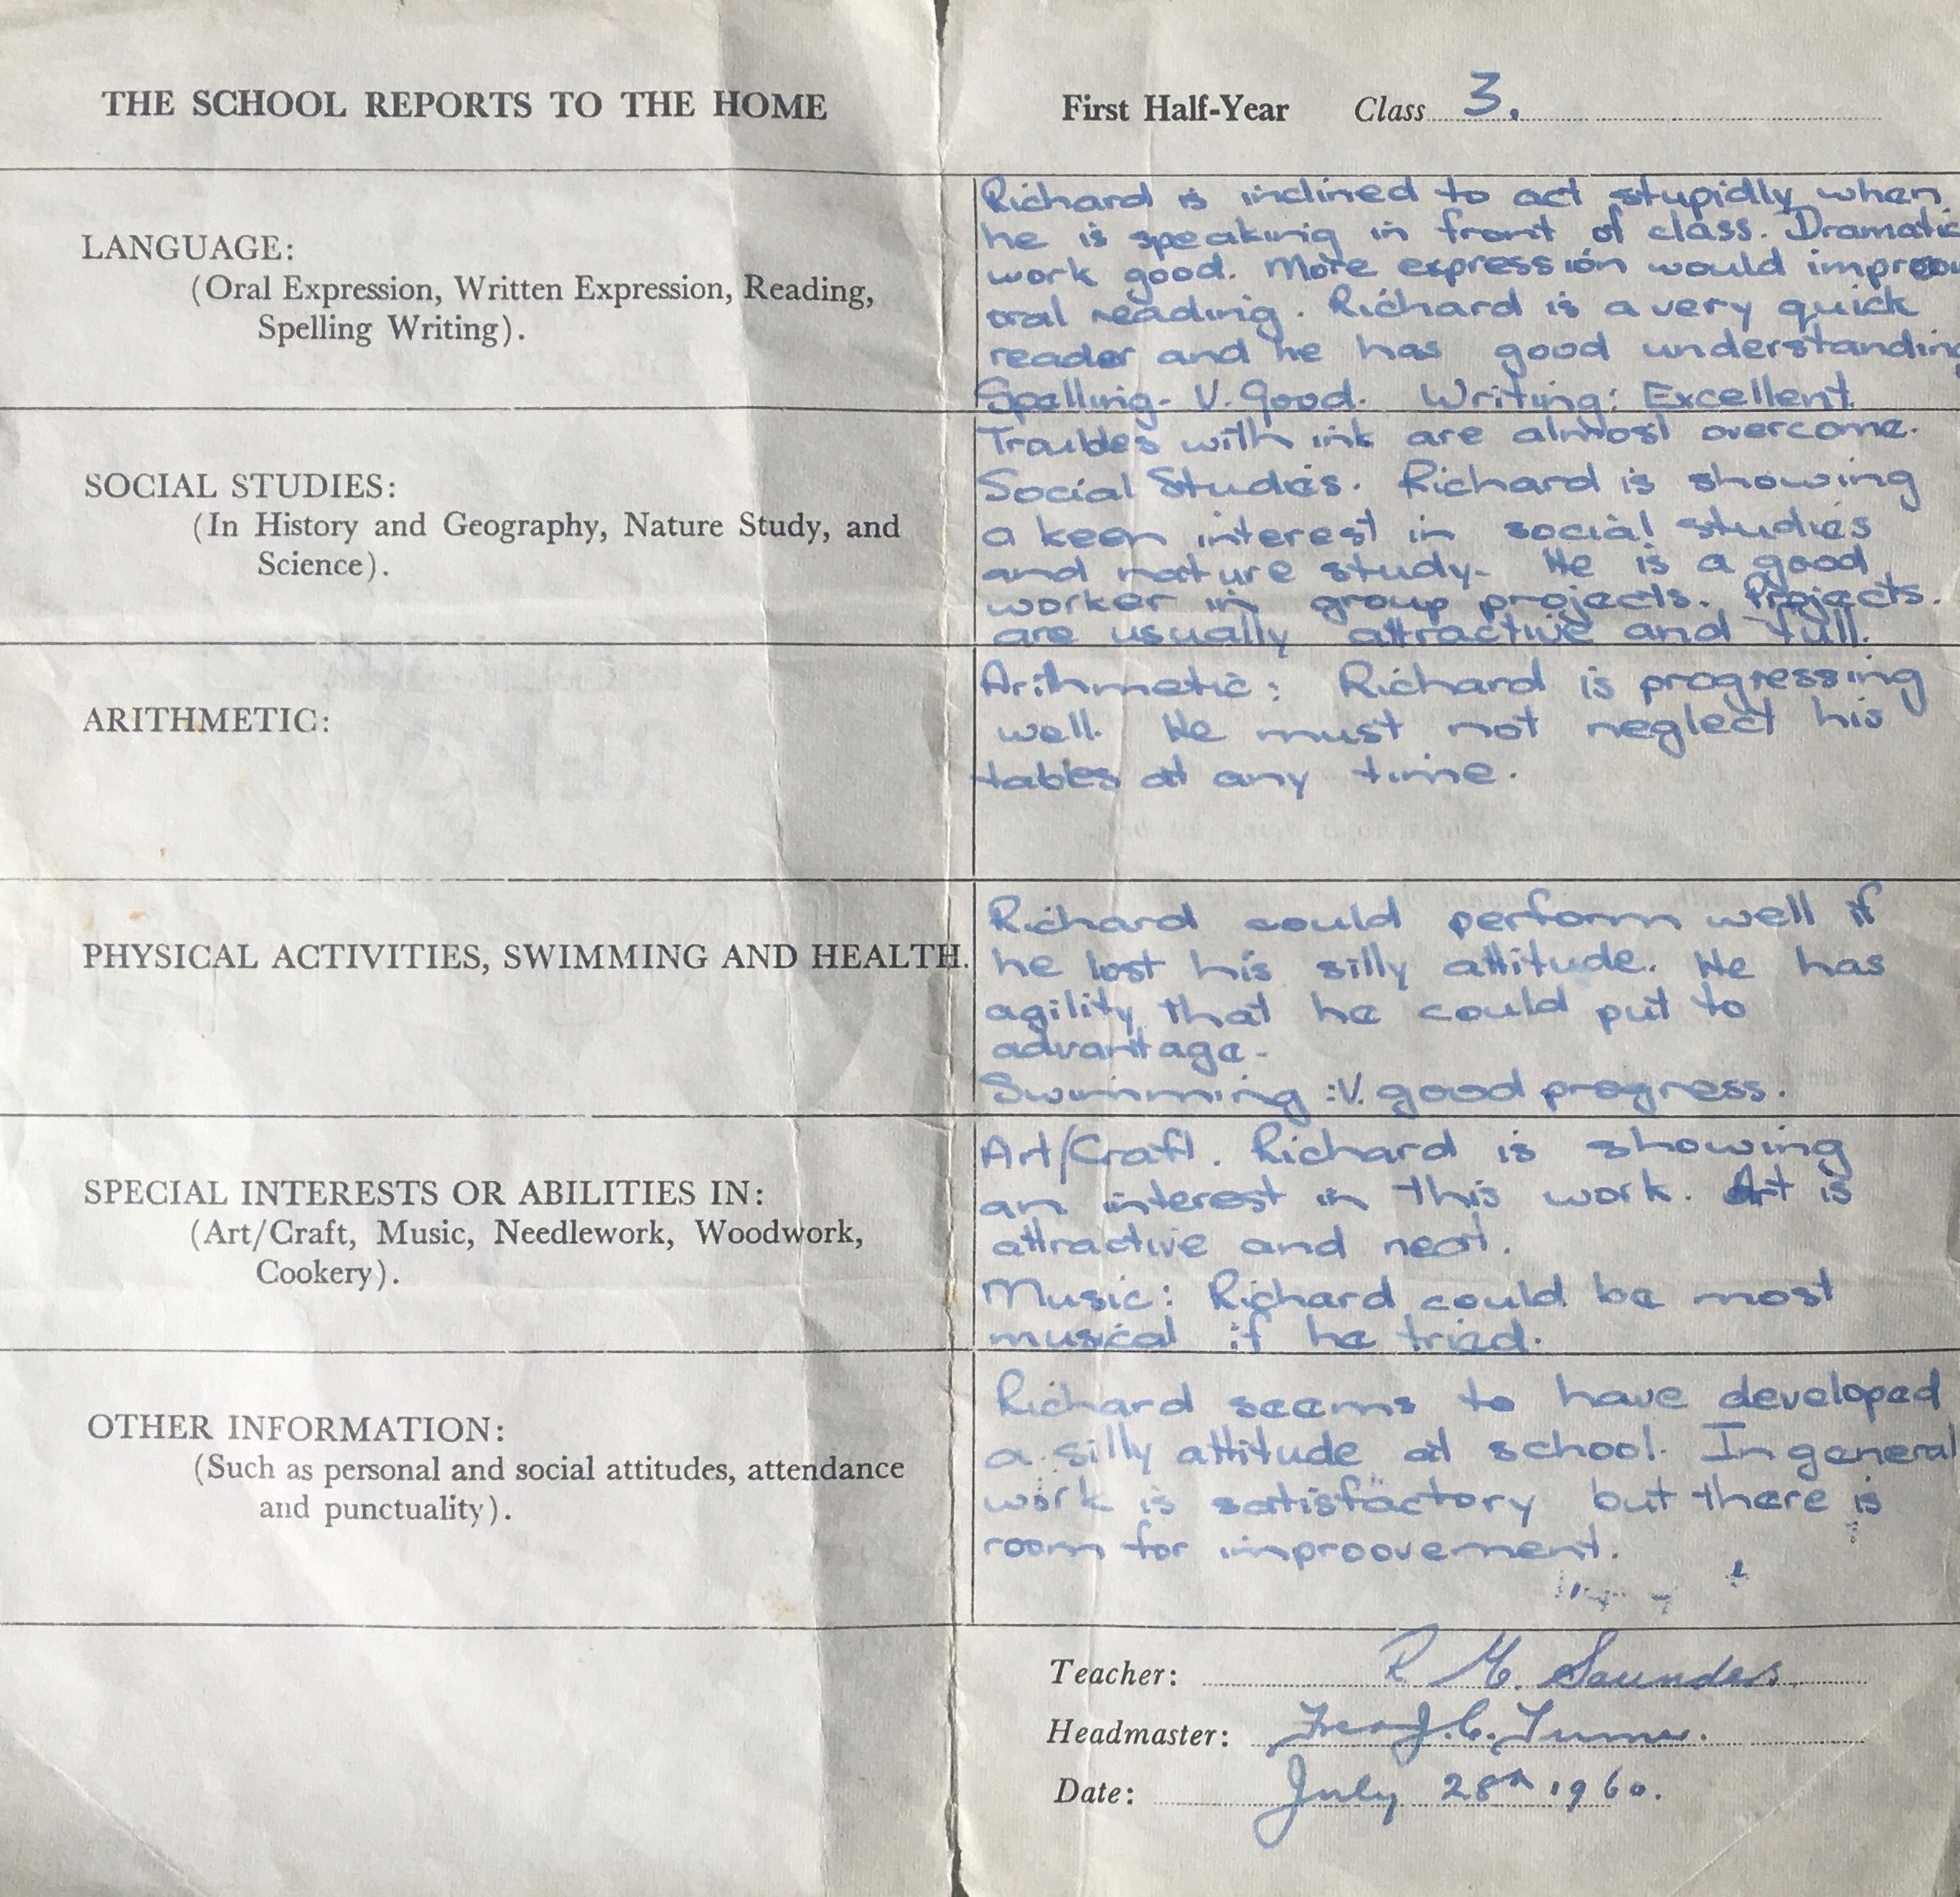 THE SCHOOL REPORTS TO THE HOME
First Half-Year Class 3.
LANGUAGE:
(Oral Expression, Written Expression, Reading,
Spelling Writing).
Richard is inclined to act stupidly when
he is speaking in front of class. Dramatic
work good. More expression would improov
oral reading. Richard is a very quick
reader and he has good understanding
Spelling. V. Good. Writing: Excellent
Troubles with ink are almost overcome.
SOCIAL STUDIES:
(In History and Geography, Nature Study, and
Science).
Social Studies. Richard is showing
a keen interest in social studies
and nature study. He is a good
worker in group projects. Projects.
are usually attractive and full.
ARITHMETIC:
Arithmetic: Richard is progressing
well. He must not neglect his
tables at any time.
PHYSICAL ACTIVITIES, SWIMMING AND HEALTH.
Richard could perform well if
he lost his silly attitude. He has
agility that he could put to
advantage.
Swimming: V. good progress.
SPECIAL INTERESTS OR ABILITIES IN:
(Art/Craft, Music, Needlework, Woodwork,
Cookery).
Art/Craft. Richard is showing
an interest in this work. Art is
attractive and neat.
Music: Richard could be most
musical if he tried.
OTHER INFORMATION:
(Such as personal and social attitudes, attendance
and punctuality).
Richard seems to have developed
a silly attitude at school. In general
work is satisfactory but there is
room for improovement.
Teacher: R M. Saunders
Headmaster: J. C. Turner.
Date: July 28th 1960.